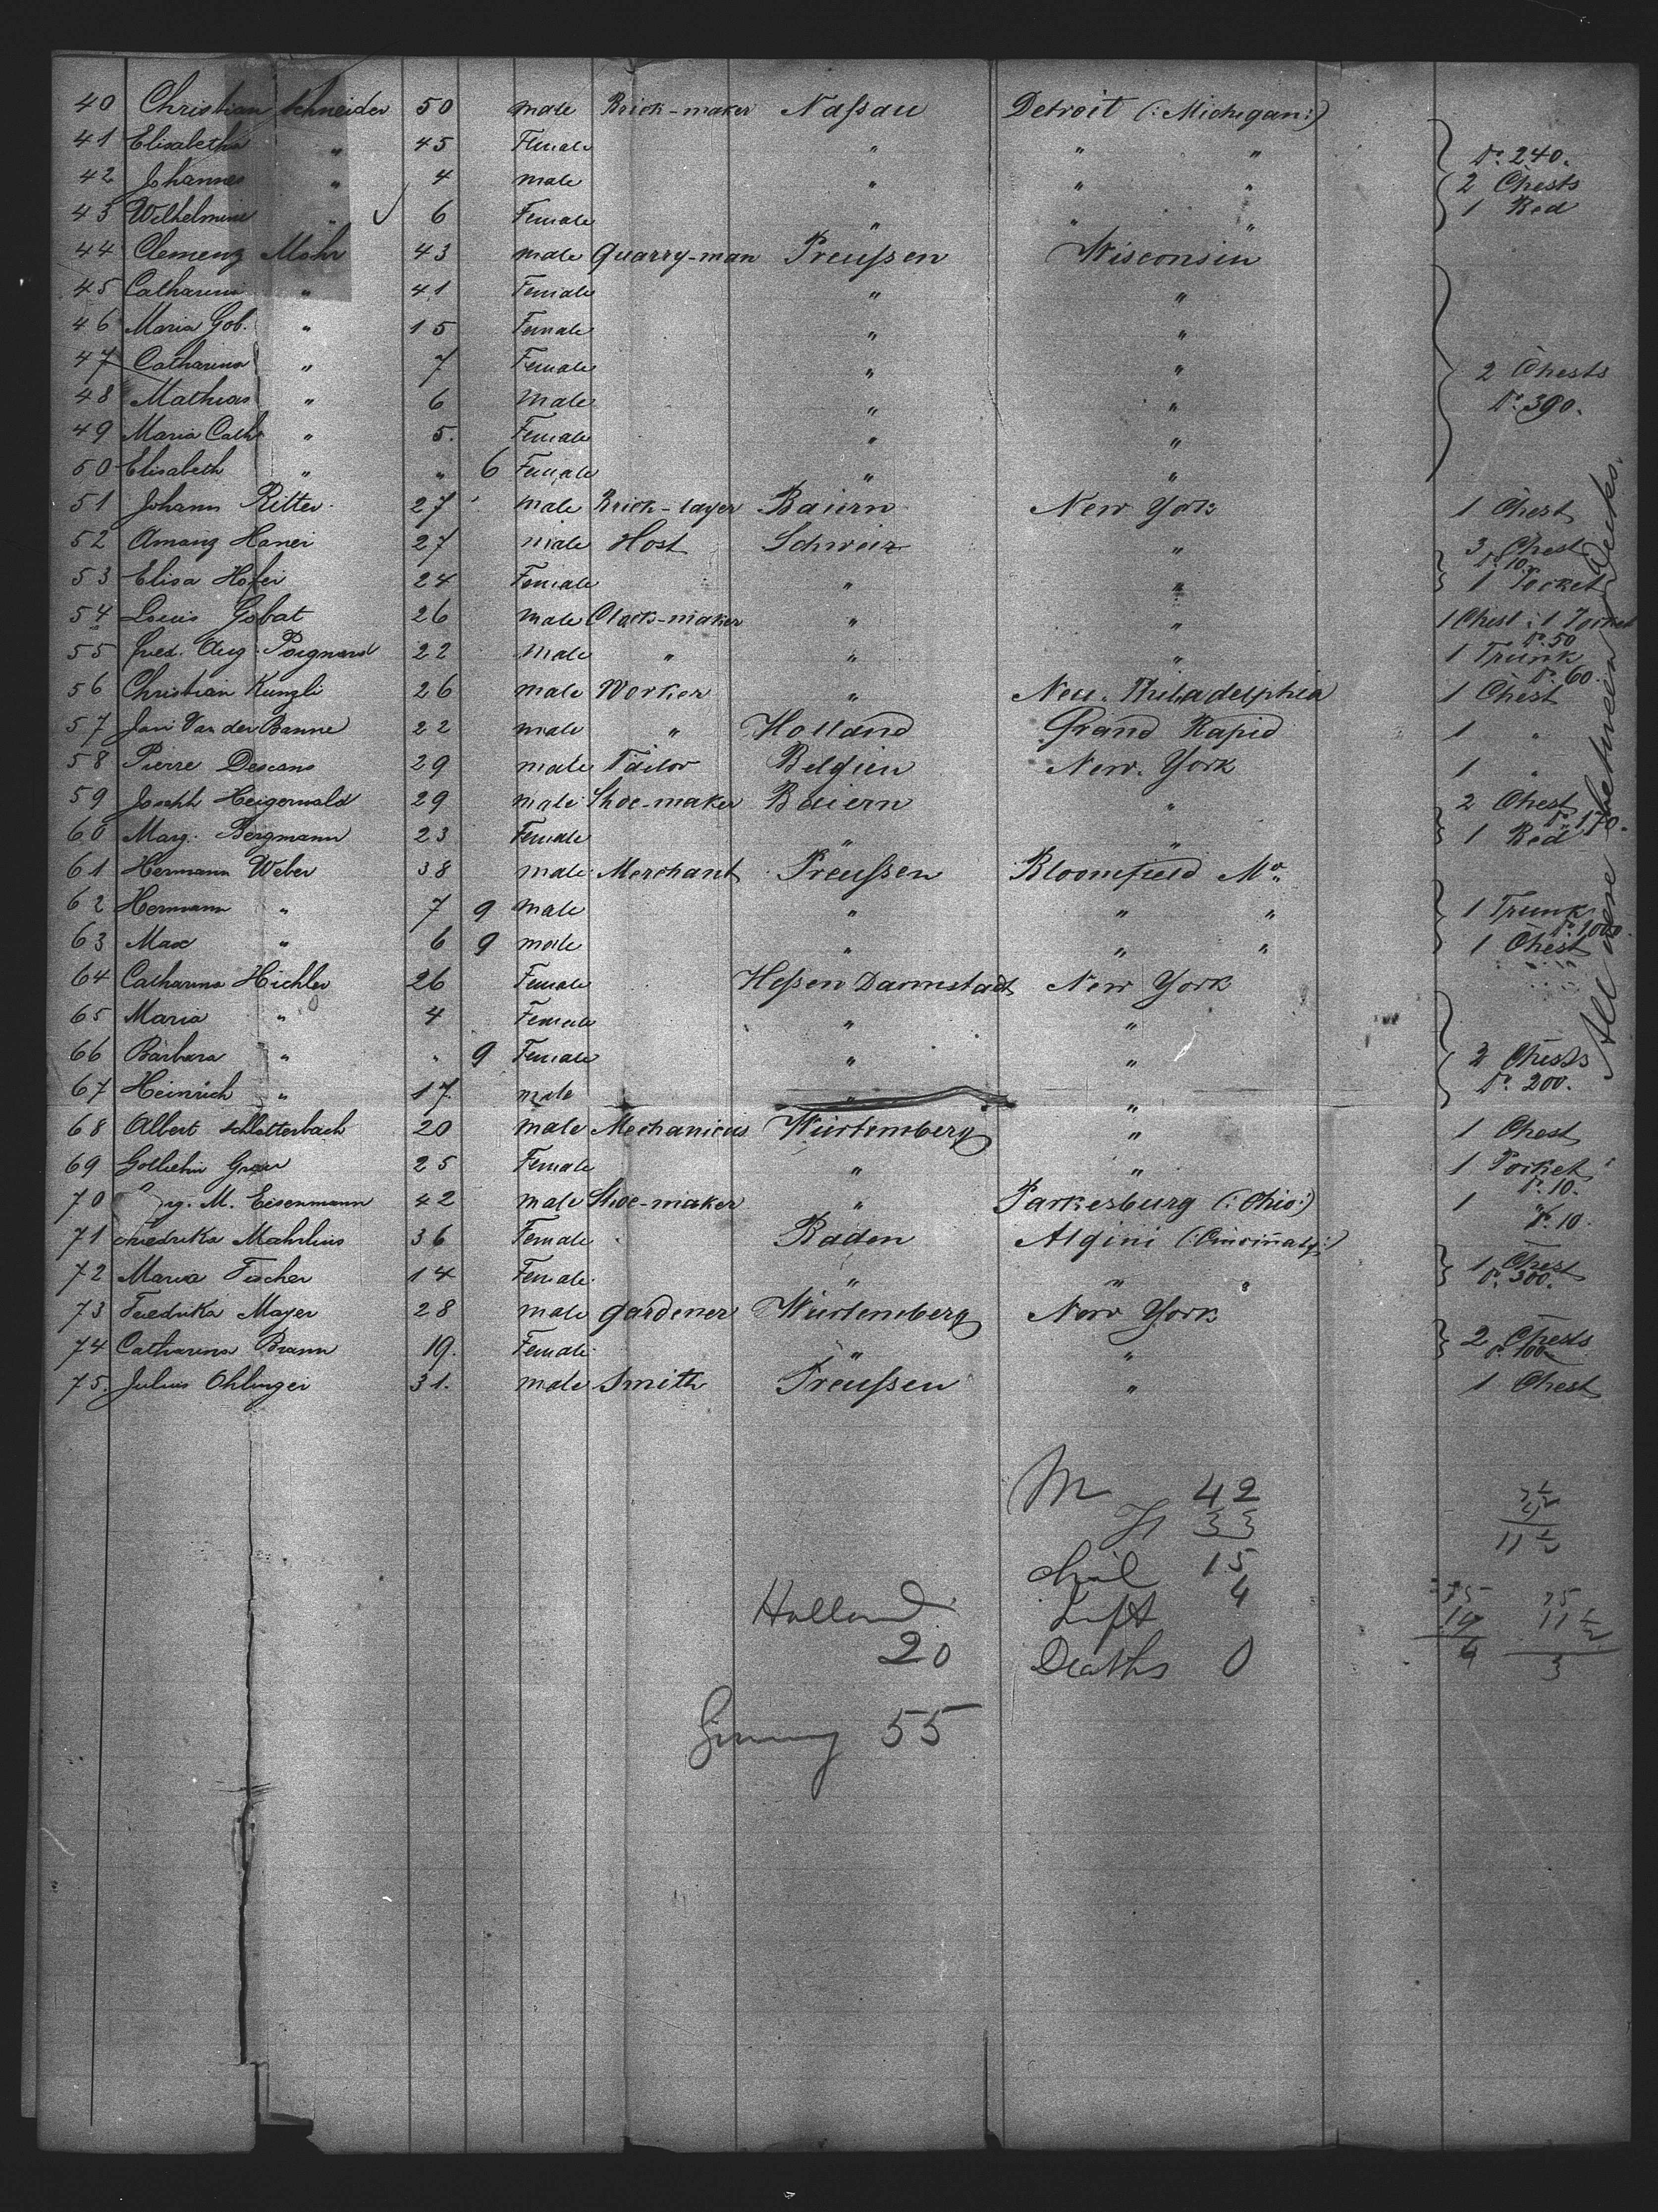 40 Christian Schneider 50 male Brick-maker Naſsau Detroit (: Michigan :)
41 Elisabetha " 45 Female " " " Dr. 240.
42 Johannes " 4 male " " " 2 Chests
43 Wilhelmine " 6 Female " " " 1 Bed
44 Clemenz Mohr 43 male Quarry-man Preuſsen Wisconsin
45 Catharina " 41 Female " "
46 Maria Gob. " 15 Female " "
47 Catharina " 7 Female " " 2 Chests
48 Mathias " 6 Male " " Dr. 390.
49 Maria Cath " 5. Female " "
50 Elisabeth " " 6 Female " "
51 Johann Ritter 27 male Brick-layer Baiern New York 1 Chest
52 Amanz Hanei 27 male Host Schweiz " 3 Chest
Dr. 10.
53 Elisa Hofei 24 Female " " 1 Pocket
54 Louis Gobat 26 male Clock-maker " " 1 Chest : 1 Pocket
Dr. 50
55 Fred. Aug. Poignard 22 Male " " " 1 Trunk
Dr. 60.
56 Christian Kungli 26 male Worker " Neu. Philadelphia 1 Chest
57 Jan Van der Banne 22 male " Holland Grand Rapid 1 "
58 Pierre Descans 29 male Tailor Belgien New. York 1 "
59 Joseph Heigerwald 29 male Shoe-maker Baiern " 2 Chest
Dr. 170.
60 Marg. Bergmann 23 Female " " 1 Bed
61 Hermann Weber 38 male Merchant Preuſsen Bloomfield Mo.
62 Hermann " 7 9 male " " " 1 Trunk
Dr. 1000.
63 Max " 6 9 male " " " 1 Chest
64 Catharina Hichler 26 Female Heſsen Darmstadt New York
65 Maria " 4 Female " "
66 Barbara " " 9 Female " " 2 Chests
67 Heinrich " 17. male " " Dr. 200.
68 Albert Schlotterbach 20 male Mechanicus Würtemberg " 1 Chest
69 Gottliebin 25 Female " " 1 Pocket
Dr. 10.
70 M. Eisenmann 42 male Shoe-maker " Parkesburg (: Ohio :) 1 "
Dr. 10.
71 Friedrika Mahrlins 36 Female Baden Algini (: Cincinaty :)
72 Maria Fischer 14 Female " " " 1 Chest
Dr. 300.
73 Friedrika Mayer 28 male Gardener Würtemberg New York
74 Catharina Braun 19. Female " " 2 Chests
Dr. 100
75. Julius Ohlinger 31. male Smith Preuſsen " 1 Chest
All these between Decks.
M 42
F 33
Chil 15
Left 4
Deaths 0
Holland
20
Germy 55
11 1/2
75
11 1/2
3